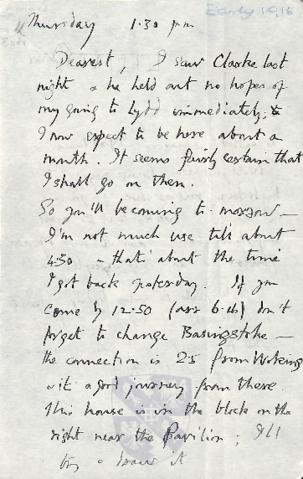 Early 1916
Thursday 1.30 pm
Dearest, I saw Clarke last
night & he held out no hopes of
my going to Lydd immediately. &
I now expect to be here about a
month. It seems fairly certain that
I shall go on then.
So you'll be coming to-morrow —
I'm not much use till about
4.50 – that's about the time
I got back yesterday. If you
come by 12.50 (arr 6.16) don't
forget to change Basingstoke —
the connection is 2.5 from Woking
a good journey from there.
This house is in the block on the
right near the Pavilion; I'll
try & draw it